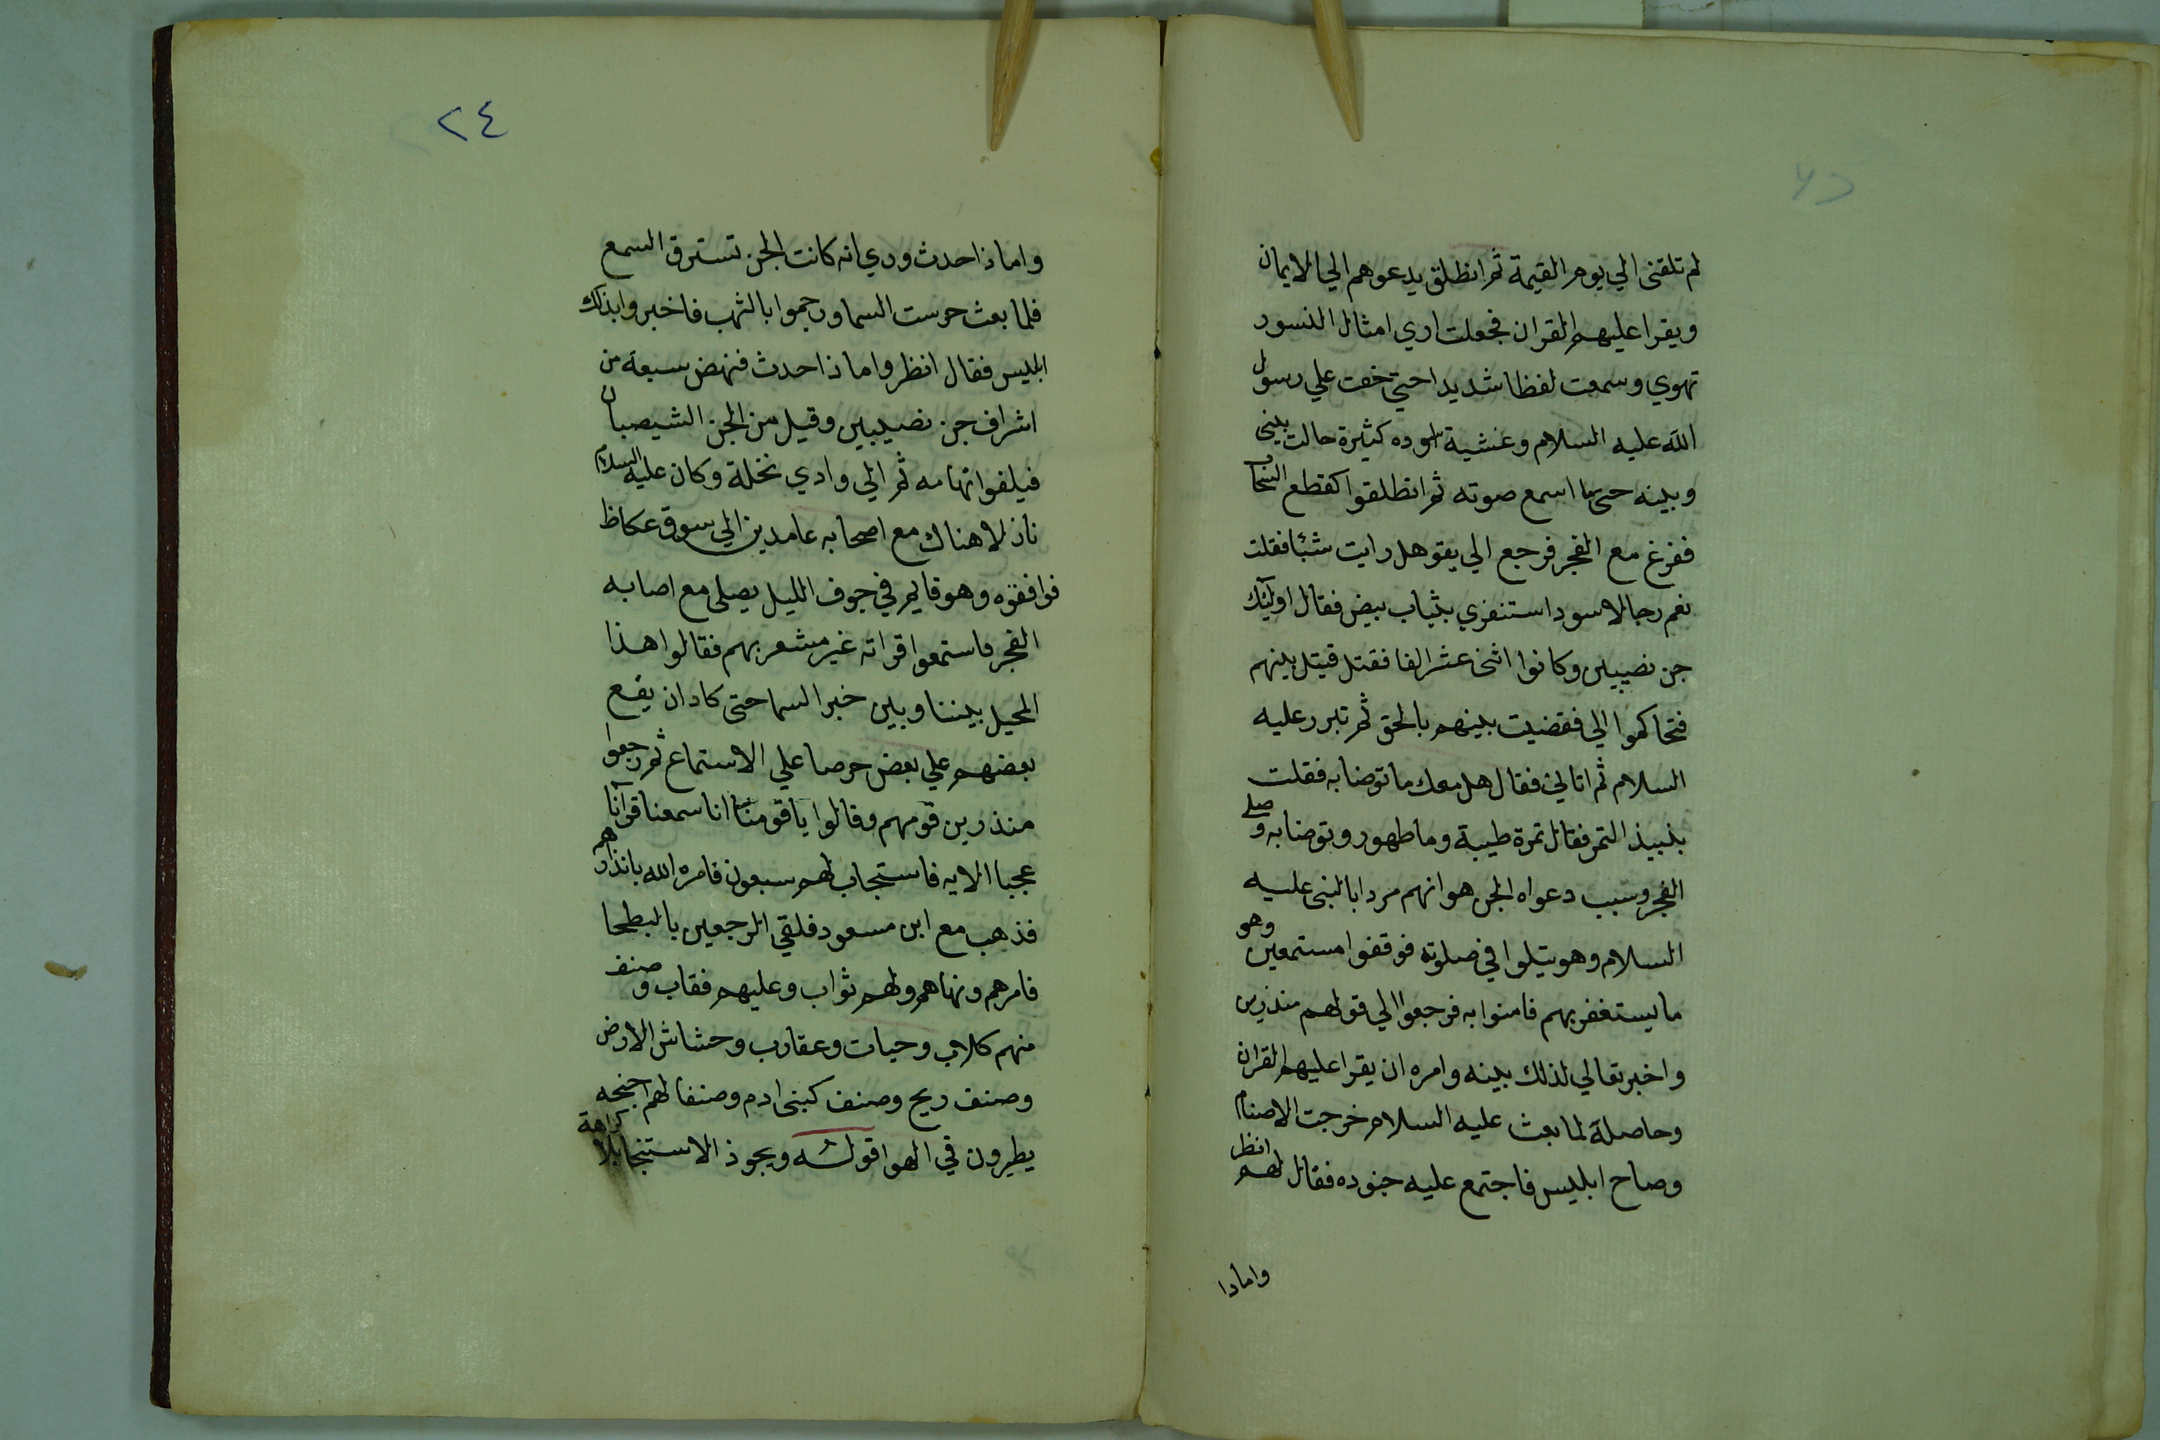 لم تلقني الي يوم القيمة ثم انطلق يدعوهم الي الايمان
ويقرا عليهم القران فجعلت اري امثال النسور
تهوي وسمعت لفظا شديدا حتي خفت علي رسول
الله عليه السلام وغشية اسوده كثيرة حالت بيني
وبينه حتي ما اسمع صوته ثم انطلقوا كقطع السحاب
ففرغ مع الفجر فرجع الي يقو هل رايت شئا فقلت
نعم رجالا سودا ستنفزي بثياب بيض فقال اوليئك
جن نصيبين وكانوا اثني عشر الفا فقتل قيتل بينهم
فتحاكموا الي فقضيت بينهم بالحق ثم تبرر عليه
السلام ثم اتا لي فقال هل معك ما توضا به فقلت
بنبيذ التمر فقال تمرة طيبة وما طهور وتوضا به وصلي
الفجر وسبب دعواه الجن هو انهم مردا بالنبي عليه
السلام وهو يتلوا في صلوته فوقفوا مستمعين وهو
ما يستغفر بهم فامنوا به فرجعوا الي قولهم منذرين
واخبر تعالي لذلك بينه وامره ان يقرا عليهم القران
وحاصلة لما بعث عليه السلام خرجت الاصنام
وصاح ابليس فاجتمع عليه جنوده فقال لهم انظر
وامادا
٢٤
واما ذا حدث وري انه كانت الجن تسترق السمع
فلما بعث حرست السما ورجموا بالشهب فاخبروا بذلك
ابليس فقال انظروا ما ذا حدث فنهض سبعة من
اشراف جن نصيبين وقيل من الجن الشيصبان
فيلغوا تهامه ثم الي وادي نخلة وكان عليه السلام
نازلا هناك مع اصحابه عامدين الي سوق عكاظ
فوافقوه وهو قايم في جوف الليل يصلي مع اصابه
الفجر فاستمعوا قراته غير مشعر بهم فقالوا هذا
المحيل بيننا وبين خبر السما حتي كاد ان يقع
بعضهم علي بعض حرصا علي الاستماع ثم رجعوا
منذرين قومهم وقالوا يا قومنا انا سمعنا قرآنا
عجبا الايه فاستجاب لهم سبعون فامره الله بانذارهم
فذهب مع ابن مسعود فلقي الرجعين بالبطحا
فامرهم ونهاهم ولهم ثواب وعليهم فقاب وصنف
منهم كلاب وحيات وعقارب وحشاش الارض
وصنف ريح وصنف كبني ادم وصنفا لهم اجنحه
يطيرون في الهوا قوله ويجوز الاستنجا بلا كراهة